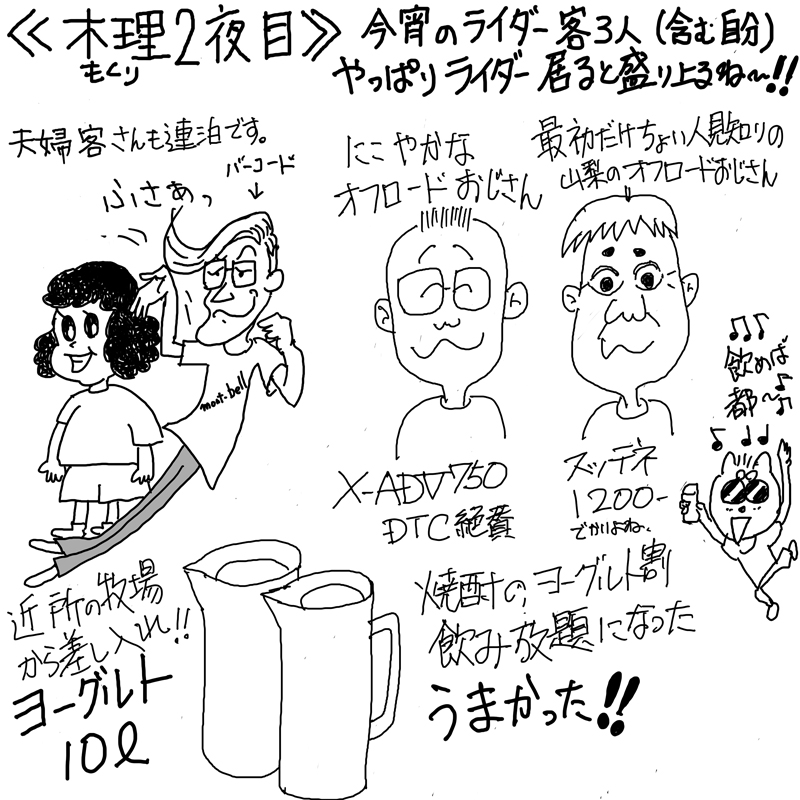 ≪木理2夜目≫
もくり
今宵のライダー客3人(含む自分)
やっぱりライダー居ると盛り上るね〜!!
夫婦客さんも連泊です。
バーコード
↓
ふさぁっ
mont-bell
にこやかな
オフロードおじさん
X-ADV750
DTC絶賛
最初だけちょい人見知りの
山梨のオフロードおじさん
スッテネ
1200-
でかいよね、
♪♪♪
飲めば
都〜♪
近所の牧場
から差し入れ!!
ヨーグルト
10ℓ
焼酎の、ヨーグルト割
飲み放題になった
うまかった!!